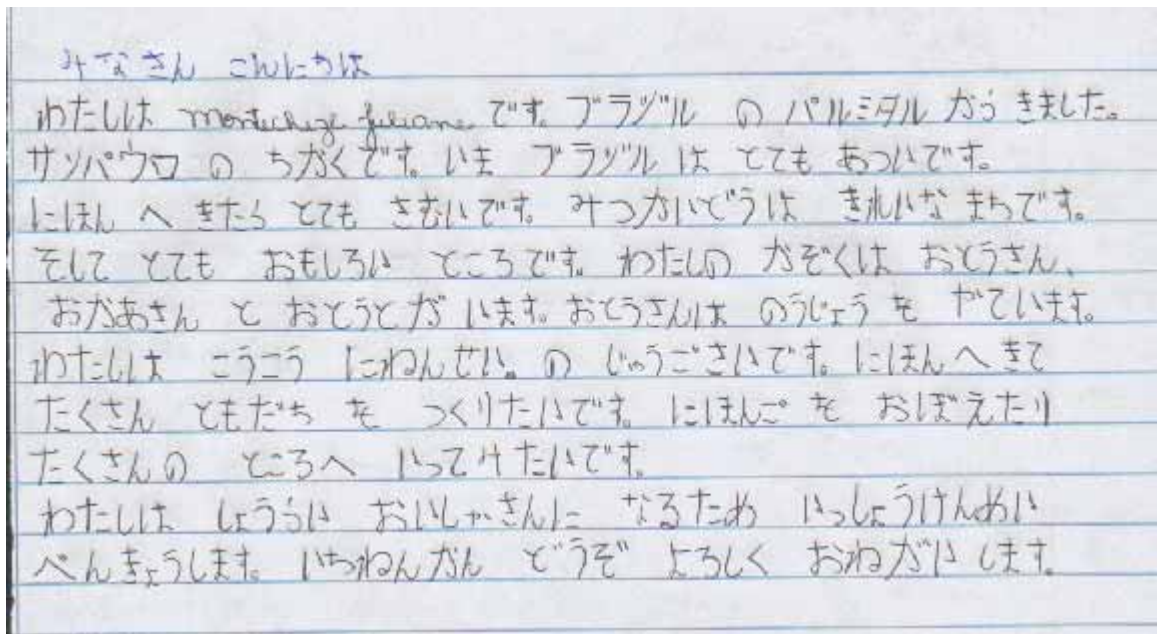 みなさん こんにちは
わたしは です。ブラジル の パルミタル から きました。
サンパウロ の ちかくです。いま ブラジル は とても あついです。
にほん へ きたら とても さむいです。みつかいどうは きれいな まちです。
そして とても おもしろい ところです。わたしの かぞくは おとうさん、
おかあさん と おとうとが います。おとうさんは のうじょう を やています。
わたしは こうこう にねんせい。の じゅうごさいです。にほんへ きて
たくさん ともだち を つくりたいです。にほんご を おぼえたり
たくさんの ところへ いってみたいです。
わたしは しょうらい おいしゃさんに なるため いっしょうけんめい
べんきょうします。いちねんかん どうぞ よろしく おねがいします。